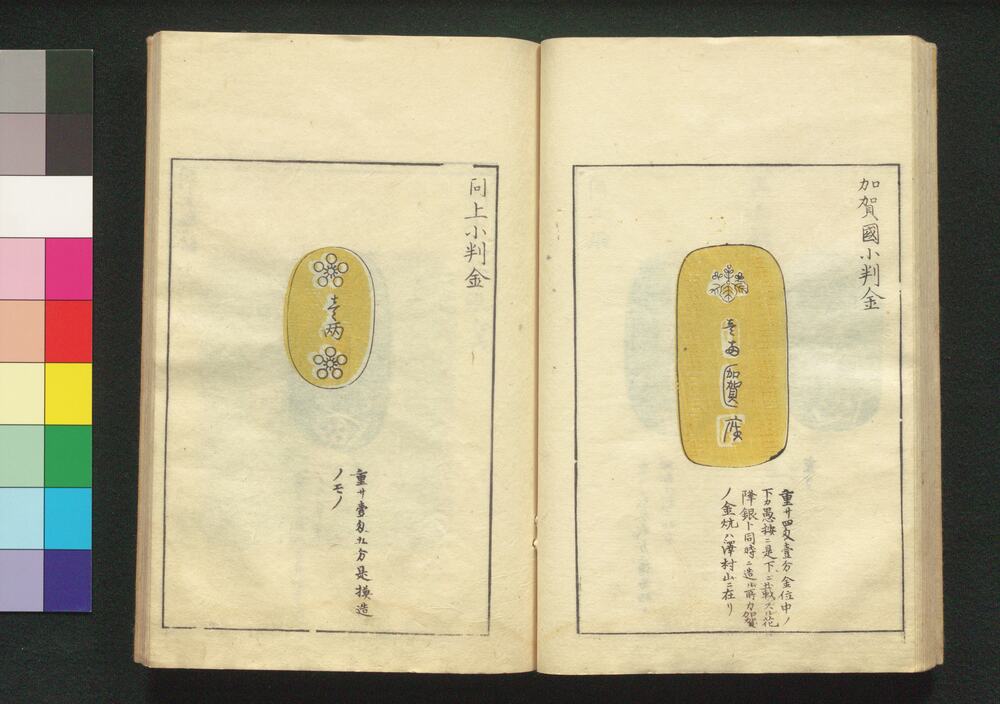 加賀國小判金
壱両
加賀
座
重サ四匁壹分金位中ノ
下カ愚按ニ是下ニ載スル花
降銀ト同時ニ造ル所カ加賀
ノ金坑ハ澤村山ニ在リ
同上小判金
壱両
重サ壹匁九分是模造
ノモノ